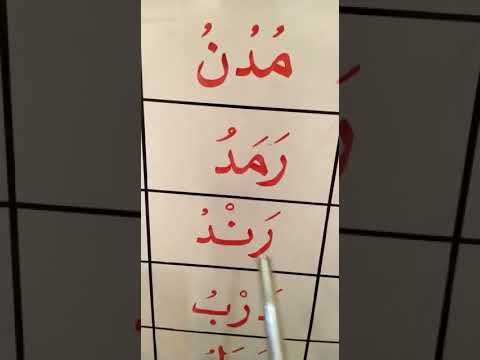 مُدُنُ
رَمَدُ
رَنْدُ
دَرْبُ